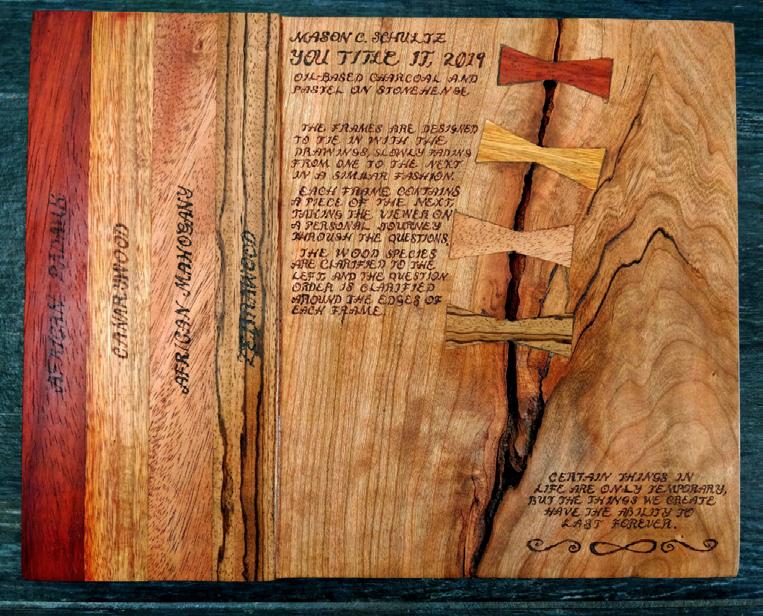 AFRICAN PADAUK
CANARYWOOD
AFRICAN MAHOGANY
ZEBRAWOOD
MASON C. SCHULTZ
YOU TITLE IT, 2019
OIL-BASED CHARCOAL AND
PASTEL ON STONEHENGE
THE FRAMES ARE DESIGNED
TO TIE IN WITH THE
DRAWINGS, SLOWLY FADING
FROM ONE TO THE NEXT
IN A SIMILAR FASHION.
EACH FRAME CONTAINS
A PIECE OF THE NEXT,
TAKING THE VIEWER ON
A PERSONAL JOURNEY
THROUGH THE QUESTIONS.
THE WOOD SPECIES
ARE CLARIFIED TO THE
LEFT AND THE QUESTION
ORDER IS CLARIFIED
AROUND THE EDGES OF
EACH FRAME.
CERTAIN THINGS IN
LIFE ARE ONLY TEMPORARY,
BUT THE THINGS WE CREATE
HAVE THE ABILITY TO
LAST FOREVER.